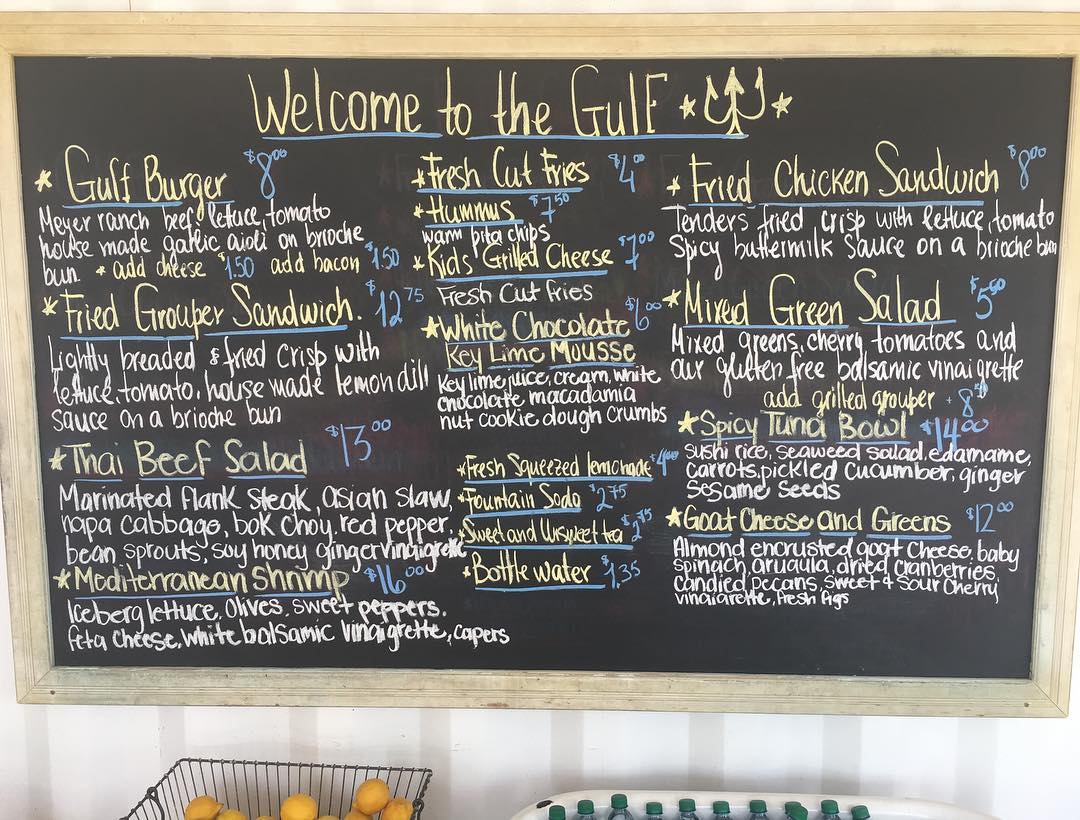 Welcome to the Gulf
Gulf Burger $8.00
Meyer ranch beef, lettuce, tomato
house made garlic aioli on brioche
bun. * add cheese $1.50 add bacon $1.50
Fried Grouper Sandwich. $12.75
Lightly breaded & fried crisp with
lettuce, tomato, house made lemon dill
sauce on a brioche bun
Thai Beef Salad $13.00
Marinated flank steak, asian slaw,
napa cabbage, bok choy, red pepper,
bean sprouts, soy honey ginger vinaigrette
Mediterranean Shrimp $16.00
Iceberg lettuce, olives, sweet peppers,
feta cheese, white balsamic vinaigrette, capers
Fresh Cut Fries $4
Hummus $7.50
warm pita chips
Kids' Grilled Cheese $7.00
Fresh Cut fries
White Chocolate $6.00
Key Lime Mousse
Key lime juice, cream, white
chocolate macadamia
nut cookie dough crumbs
Fresh Squeezed lemonade $4.00
Fountain Soda $2.75
Sweet and Unsweet tea $2.75
Bottle water $1.35
Fried Chicken Sandwich $8.00
Tenders fried crisp with lettuce, tomato
Spicy buttermilk sauce on a brioche bun
Mixed Green Salad $5.50
Mixed greens, cherry tomatoes and
our gluten free balsamic vinaigrette
add grilled grouper + 8.50
Spicy Tuna Bowl $14.00
sushi rice, seaweed salad, edamame,
carrots, pickled cucumber, ginger
sesame seeds
Goat Cheese and Greens $12.00
Almond encrusted goat cheese, baby
spinach, arugula, dried cranberries
candied pecans, sweet & sour cherry
vinaiarette, fresh figs